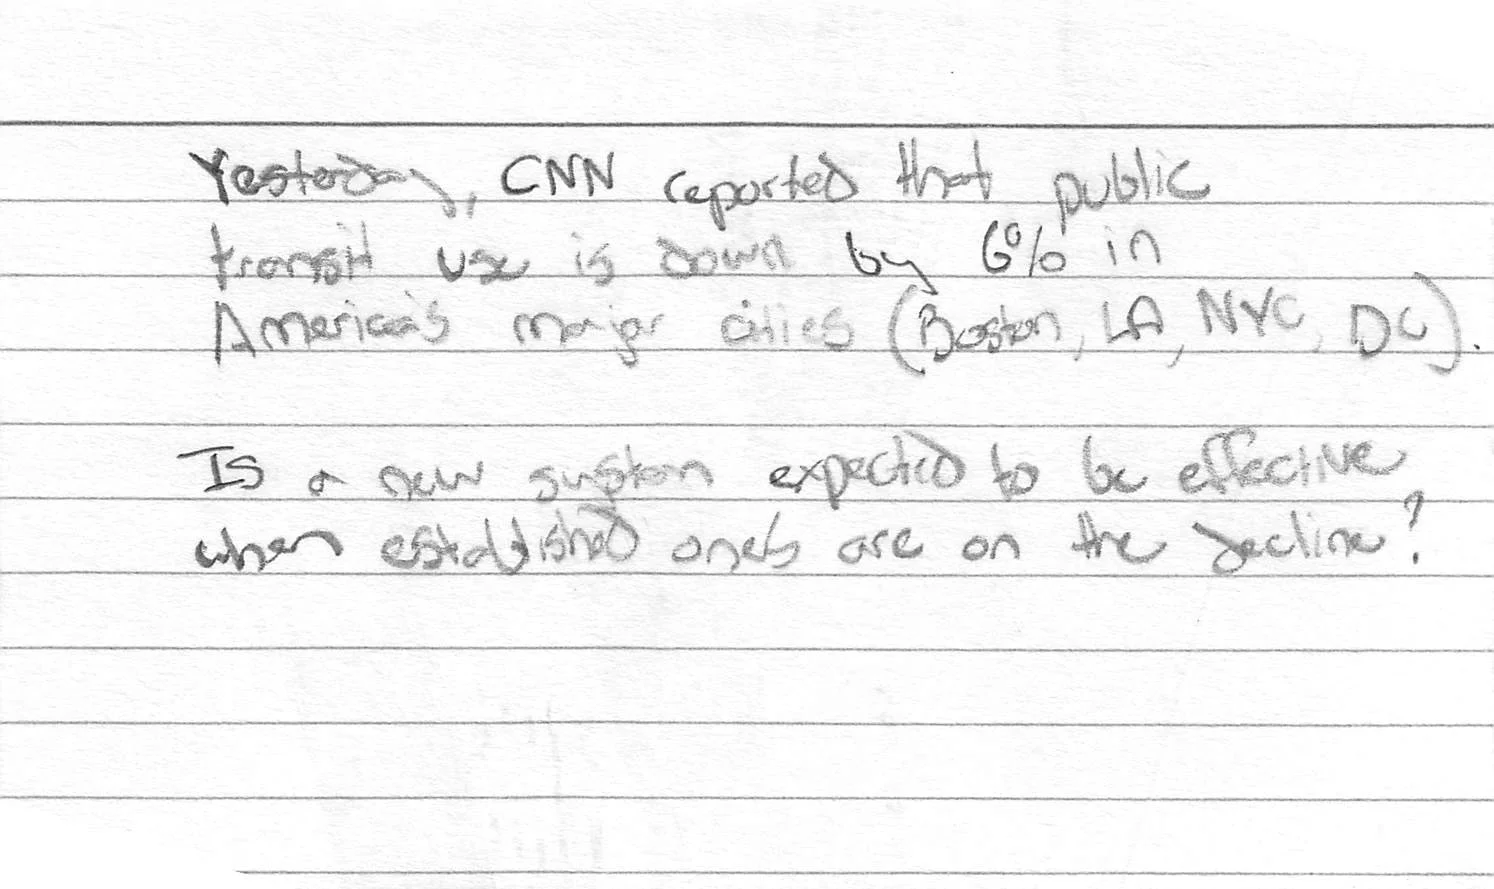 Yesterday, CNN reported that public
transit use is down by 6% in
America's major cities (Boston, LA, NYC, DC).
Is a new system expected to be effective
when established ones are on the decline?